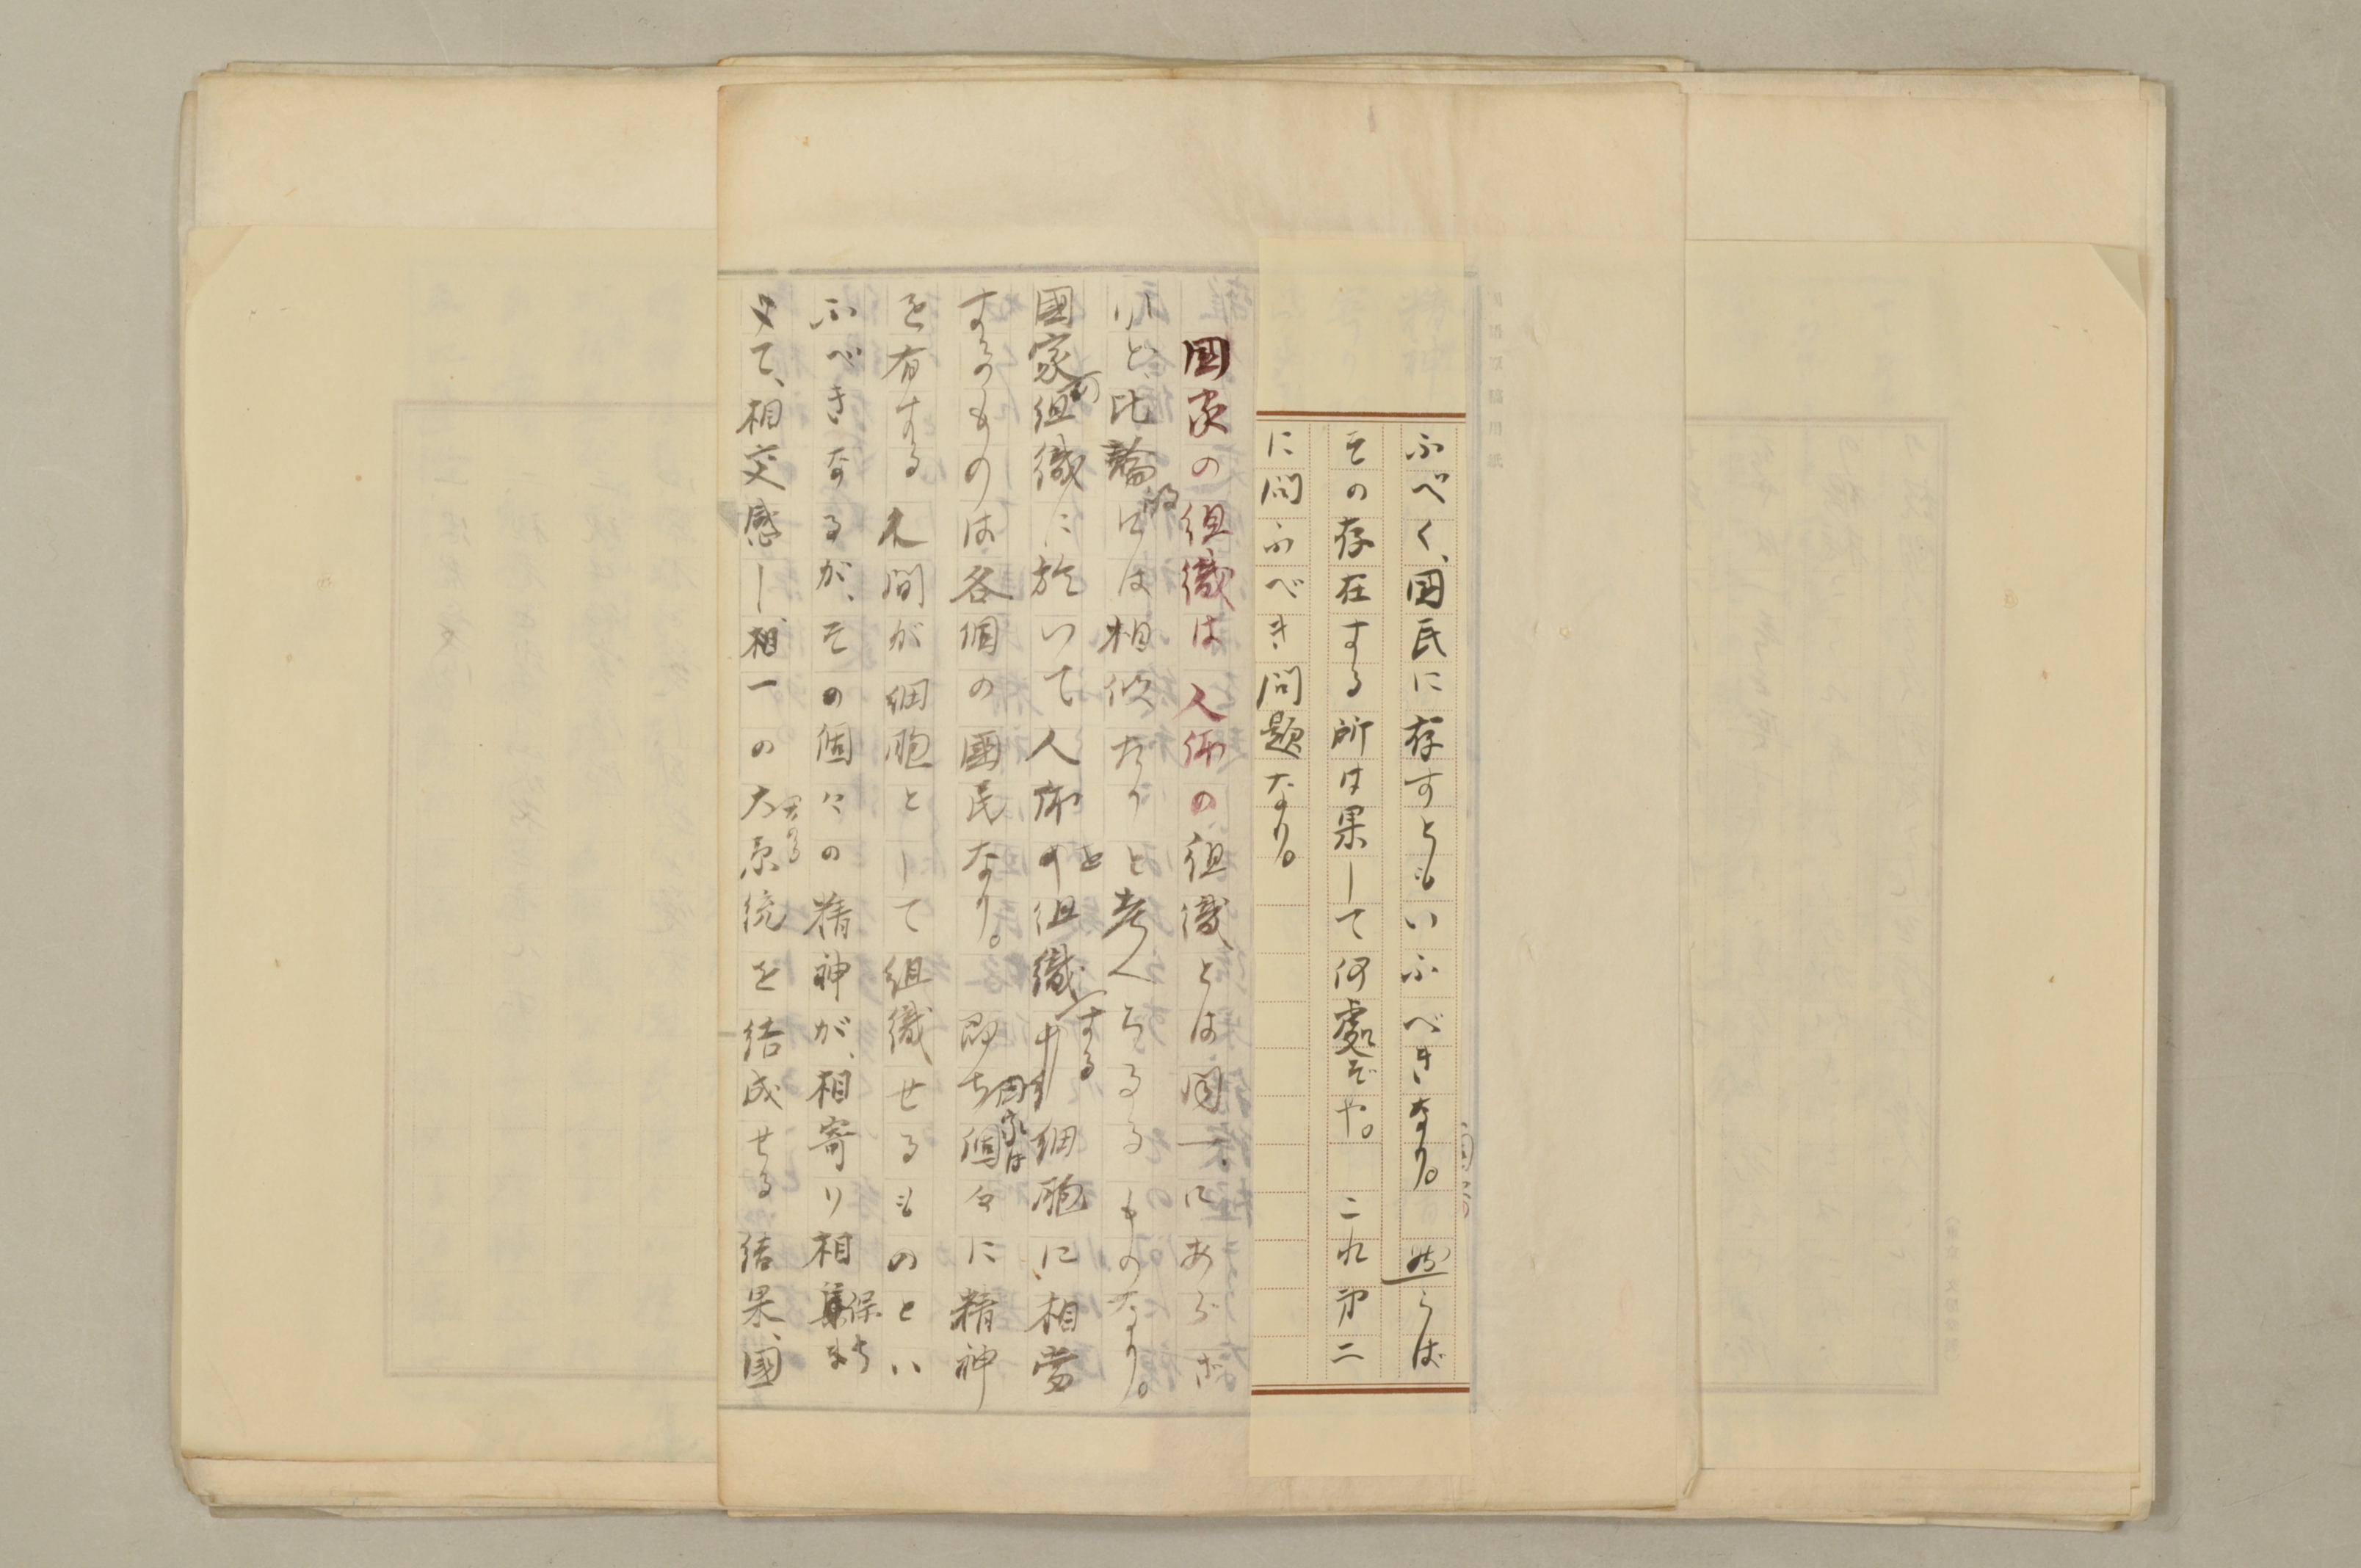 ふべく、国民に存すともいふべきなり。然らば
その存在する所は果して何處ぞや。これ第二
に問ふべき問題なり。
国家の組織は人体の組織とは同一にあらざ
れど、比論的には相似たりと考へらるるものなり。
國家の組織に於いて人体を組織する細胞に相當
するものは各個の國民なり。即ち國家は個々に精神
を有する人間が細胞として組織せるものとい
ふべきなるが、その個々の精神が、相寄り相保ち
て、相交感し、一の大なる系統を結成せる結果、國